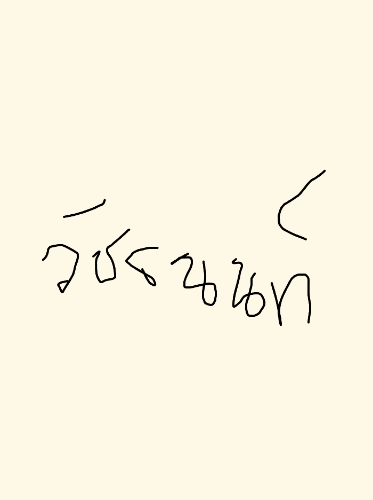 วัชรนนท์